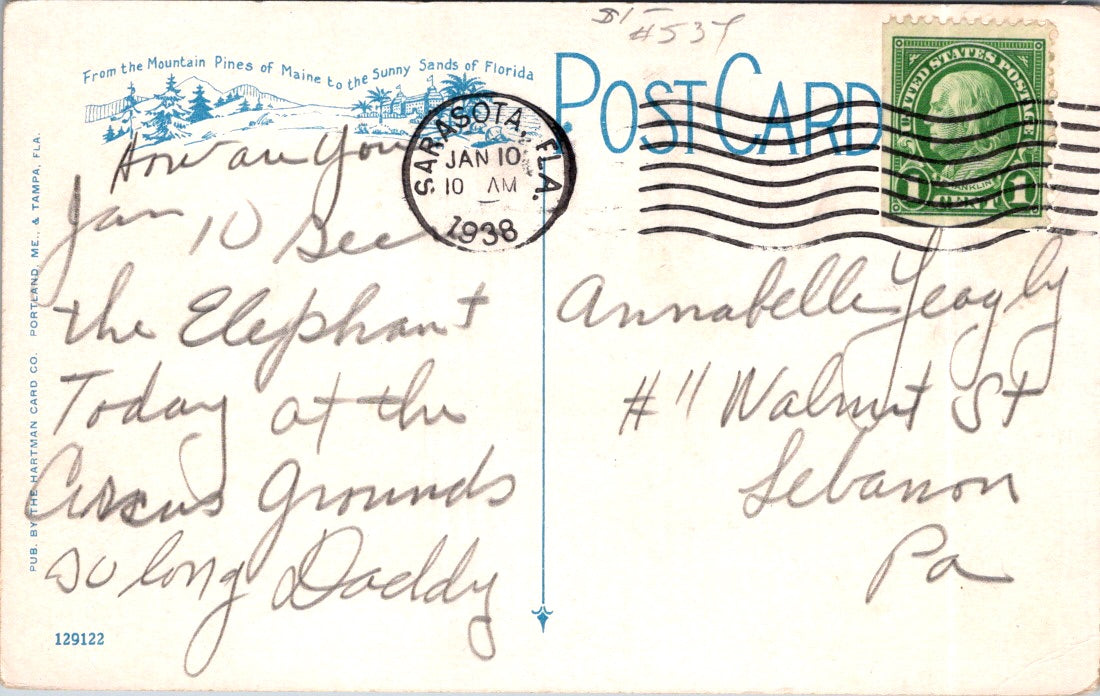 $1- #537
From the Mountain Pines of Maine to the Sunny Sands of Florida
POST CARD
UNITED STATES POSTAGE
FRANKLIN
1 CENT 1
SARASOTA, FLA.
JAN 10
10 AM
1938
How are You
Jan 10 See
the Elephant
Today at the
Circus Grounds
so long Daddy
Annabelle Yeagly
#11 Walnut St
Lebanon
Pa
PUB. BY THE HARTMAN CARD CO. PORTLAND, ME., & TAMPA, FLA.
129122